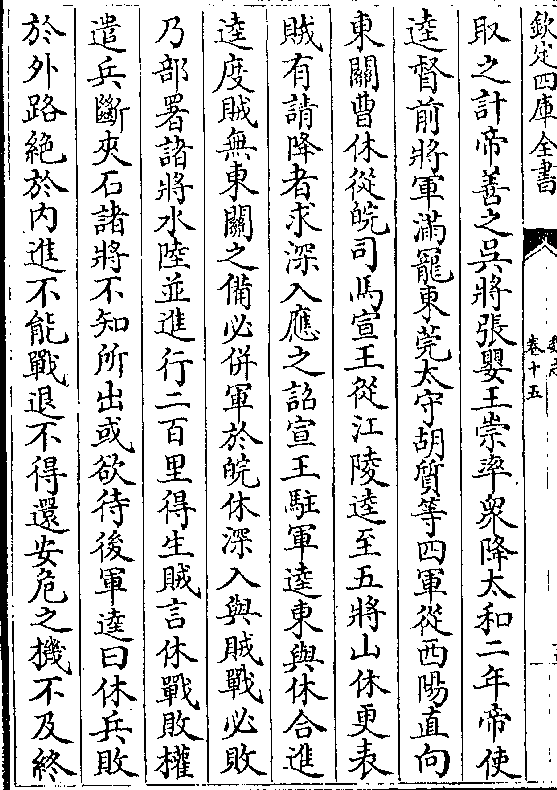 欽定四庫全書
魏志
卷十五
取之計帝善之吳將張嬰王崇率衆降太和二年帝使
逵督前將軍滿寵東莞太守胡質等四軍從西陽直向
東關曹休從皖司馬宣王從江陵逵至五將山休更表
賊有請降者求深入應之詔宣王駐軍逵東與休合進
逵度賊無東關之備必併軍於皖休深入與賊戰必敗
乃部署諸將水陸並進行二百里得生賊言休戰敗權
遣兵斷夾石諸將不知所出或欲待後軍逵曰休兵敗
於外路絶於内進不能戰退不得還安危之機不及終